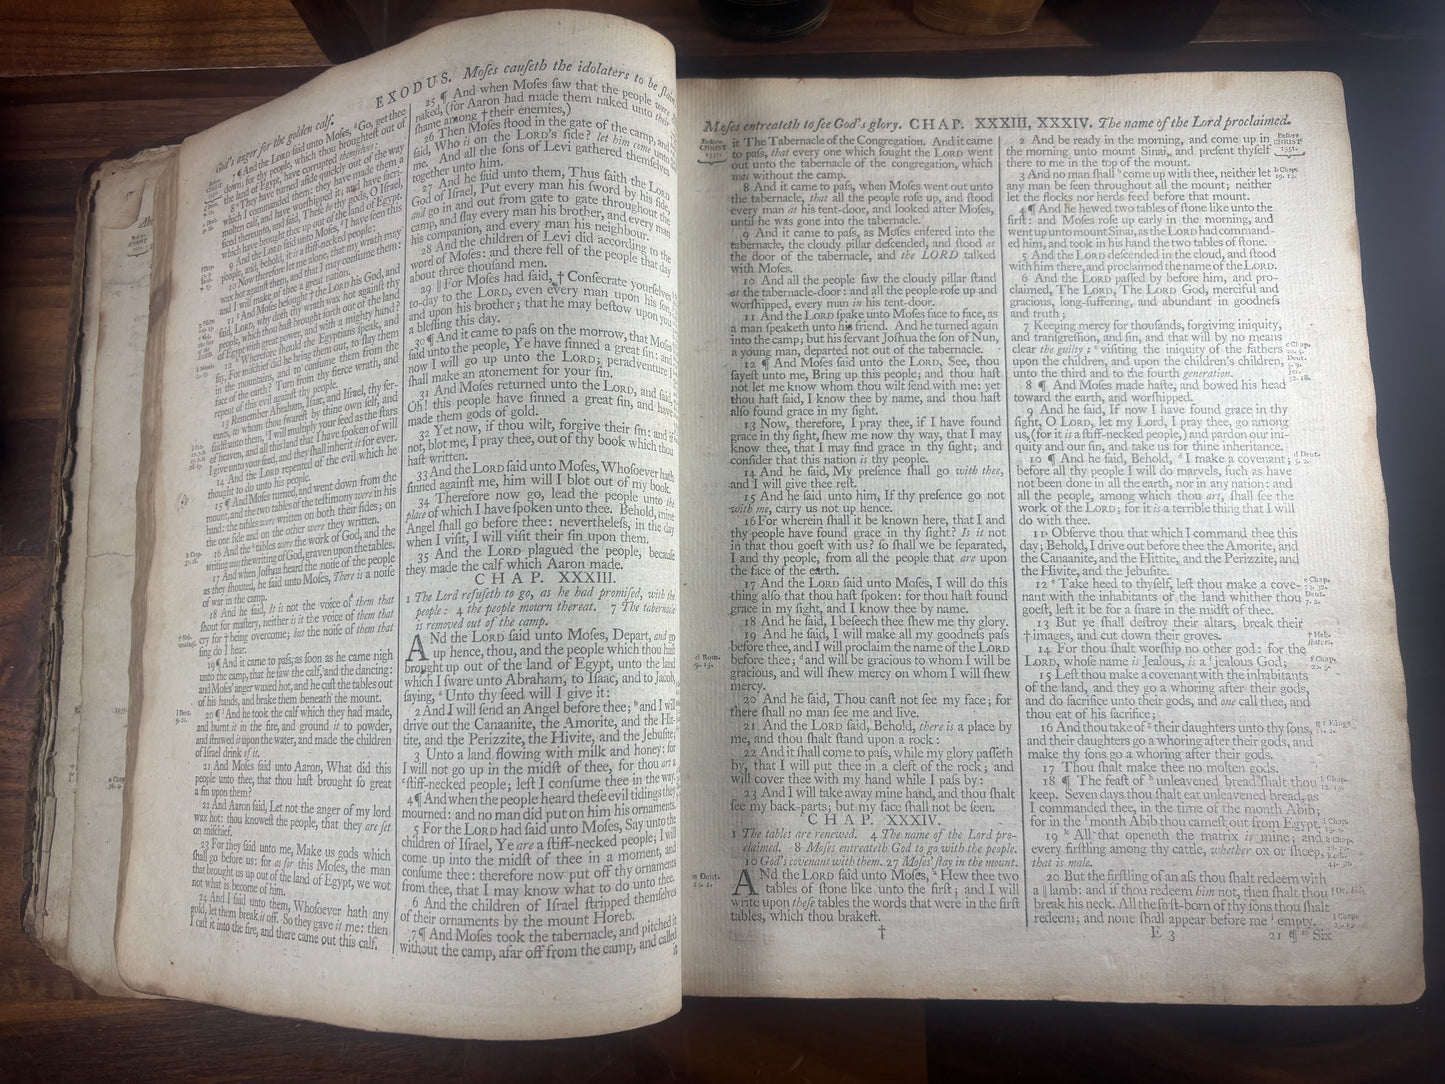 EXODUS. Moſes cauſeth the idolaters to be ſlain.
God's anger for the golden calf.
7 ¶ And the LORD ſaid unto Moſes, Go, get thee
down: for thy people, which thou broughteſt out of
the land of Egypt, have corrupted themſelves:
8 They have turned aſide quickly out of the way
which I commanded them: they have made them a
molten calf, and have worſhipped it; and have ſacri-
ficed thereunto, and ſaid, Theſe be thy gods, O Iſrael,
which have brought thee up out of the land of Egypt.
9 And the LORD ſaid unto Moſes, I have ſeen this
people, and, behold, it is a ſtiff-necked people:
10 Now therefore let me alone, that my wrath may
wax hot againſt them, and that I may conſume them:
and I will make of thee a great nation.
11 And Moſes beſought † the LORD his God, and
ſaid, LORD, why doth thy wrath wax hot againſt thy
people, which thou haſt brought forth out of the land
of Egypt with great power, and with a mighty hand?
12 Wherefore ſhould the Egyptians ſpeak, and
ſay, For miſchief did he bring them out, to ſlay them
in the mountains, and to conſume them from the
face of the earth? Turn from thy fierce wrath, and
repent of this evil againſt thy people.
13 Remember Abraham, Iſaac, and Iſrael, thy ſer-
vants, to whom thou ſwareſt by thine own ſelf, and
ſaidſt unto them, I will multiply your ſeed as the ſtars
of heaven, and all this land that I have ſpoken of will
I give unto your ſeed, and they ſhall inherit it for ever.
14 And the LORD repented of the evil which he
thought to do unto his people.
15 ¶ And Moſes turned, and went down from the
mount, and the two tables of the teſtimony were in his
hand: the tables were written on both their ſides; on
the one ſide and on the other were they written.
16 And the tables were the work of God, and the
writing was the writing of God, graven upon the tables.
17 And when Joſhua heard the noiſe of the people
as they ſhouted, he ſaid unto Moſes, There is a noiſe
of war in the camp.
18 And he ſaid, It is not the voice of them that
ſhout for maſtery, neither is it the voice of them that
cry for † being overcome; but the noiſe of them that
ſing do I hear.
19 ¶ And it came to paſs, as ſoon as he came nigh
unto the camp, that he ſaw the calf, and the dancing:
and Moſes' anger waxed hot, and he caſt the tables out
of his hands, and brake them beneath the mount.
20 And he took the calf which they had made,
and burnt it in the fire, and ground it to powder,
and ſtrawed it upon the water, and made the children
of Iſrael drink of it.
21 And Moſes ſaid unto Aaron, What did this
people unto thee, that thou haſt brought ſo great
a ſin upon them?
22 And Aaron ſaid, Let not the anger of my lord
wax hot: thou knoweſt the people, that they are ſet
on miſchief.
23 For they ſaid unto me, Make us gods which
ſhall go before us: for as for this Moſes, the man
that brought us up out of the land of Egypt, we wot
not what is become of him.
24 And I ſaid unto them, Whoſoever hath any
gold, let them break it off. So they gave it me: then
I caſt it into the fire, and there came out this calf.
25 ¶ And when Moſes ſaw that the people were
naked, (for Aaron had made them naked unto their
ſhame among † their enemies,)
26 Then Moſes ſtood in the gate of the camp, and
ſaid, Who is on the LORD's ſide? let him come unto
me. And all the ſons of Levi gathered themſelves
together unto him.
27 And he ſaid unto them, Thus ſaith the LORD
God of Iſrael, Put every man his ſword by his ſide,
and go in and out from gate to gate throughout the
camp, and ſlay every man his brother, and every man
his companion, and every man his neighbour.
28 And the children of Levi did according to the
word of Moſes: and there fell of the people that day
about three thouſand men.
29 ‖ For Moſes had ſaid, † Conſecrate yourſelves
to-day to the LORD, even every man upon his ſon,
and upon his brother; that he may beſtow upon you
a bleſſing this day.
30 ¶ And it came to paſs on the morrow, that Moſes
ſaid unto the people, Ye have ſinned a great ſin: and
now I will go up unto the LORD; peradventure I
ſhall make an atonement for your ſin.
31 And Moſes returned unto the LORD, and ſaid,
Oh! this people have ſinned a great ſin, and have
made them gods of gold.
32 Yet now, if thou wilt, forgive their ſin: and if
not, blot me, I pray thee, out of thy book which thou
haſt written.
33 And the LORD ſaid unto Moſes, Whoſoever hath
ſinned againſt me, him will I blot out of my book.
34 Therefore now go, lead the people unto the
place of which I have ſpoken unto thee. Behold, mine
Angel ſhall go before thee: nevertheleſs, in the day
when I viſit, I will viſit their ſin upon them.
35 And the LORD plagued the people, becauſe
they made the calf which Aaron made.
CHAP. XXXIII.
1 The Lord refuſeth to go, as he had promiſed, with the
people: 4 the people mourn thereat. 7 The tabernacle
is removed out of the camp.
ANd the LORD ſaid unto Moſes, Depart, and go
up hence, thou, and the people which thou haſt
brought up out of the land of Egypt, unto the land
which I ſware unto Abraham, to Iſaac, and to Jacob,
ſaying, Unto thy ſeed will I give it:
2 And I will ſend an Angel before thee; and I will
drive out the Canaanite, the Amorite, and the Hit-
tite, and the Perizzite, the Hivite, and the Jebuſite;
3 Unto a land flowing with milk and honey: for
I will not go up in the midſt of thee, for thou art a
ſtiff-necked people; leſt I conſume thee in the way.
4 ¶ And when the people heard theſe evil tidings they
mourned: and no man did put on him his ornaments.
5 For the LORD had ſaid unto Moſes, Say unto the
children of Iſrael, Ye are a ſtiff-necked people; I will
come up into the midſt of thee in a moment, and
conſume thee: therefore now put off thy ornaments
from thee, that I may know what to do unto thee.
6 And the children of Iſrael ſtripped themſelves
of their ornaments by the mount Horeb.
7 ¶ And Moſes took the tabernacle, and pitched it
without the camp, afar off from the camp, and called
it
Moſes entreateth to ſee God's glory. CHAP. XXXIII, XXXIV. The name of the Lord proclaimed.
Before
CHRIST
1551.
it The Tabernacle of the Congregation. And it came
to paſs, that every one which ſought the LORD went
out unto the tabernacle of the congregation, which
was without the camp.
8 And it came to paſs, when Moſes went out unto
the tabernacle, that all the people roſe up, and ſtood
every man at his tent-door, and looked after Moſes,
until he was gone into the tabernacle.
9 And it came to paſs, as Moſes entered into the
tabernacle, the cloudy pillar deſcended, and ſtood at
the door of the tabernacle, and the LORD talked
with Moſes.
10 And all the people ſaw the cloudy pillar ſtand
at the tabernacle-door: and all the people roſe up and
worſhipped, every man in his tent-door.
11 And the LORD ſpake unto Moſes face to face, as
a man ſpeaketh unto his friend. And he turned again
into the camp; but his ſervant Joſhua the ſon of Nun,
a young man, departed not out of the tabernacle.
12 ¶ And Moſes ſaid unto the LORD, See, thou
ſayeſt unto me, Bring up this people; and thou haſt
not let me know whom thou wilt ſend with me: yet
thou haſt ſaid, I know thee by name, and thou haſt
alſo found grace in my ſight.
13 Now, therefore, I pray thee, if I have found
grace in thy ſight, ſhew me now thy way, that I may
know thee, that I may find grace in thy ſight; and
conſider that this nation is thy people.
14 And he ſaid, My preſence ſhall go with thee,
and I will give thee reſt.
15 And he ſaid unto him, If thy preſence go not
with me, carry us not up hence.
16 For wherein ſhall it be known here, that I and
thy people have found grace in thy ſight? Is it not
in that thou goeſt with us? ſo ſhall we be ſeparated,
I and thy people, from all the people that are upon
the face of the earth.
17 And the LORD ſaid unto Moſes, I will do this
thing alſo that thou haſt ſpoken: for thou haſt found
grace in my ſight, and I know thee by name.
18 And he ſaid, I beſeech thee ſhew me thy glory.
19 And he ſaid, I will make all my goodneſs paſs
before thee, and I will proclaim the name of the LORD
before thee; and will be gracious to whom I will be
gracious, and will ſhew mercy on whom I will ſhew
mercy.
20 And he ſaid, Thou canſt not ſee my face; for
there ſhall no man ſee me and live.
21 And the LORD ſaid, Behold, there is a place by
me, and thou ſhalt ſtand upon a rock:
22 And it ſhall come to paſs, while my glory paſſeth
by, that I will put thee in a cleft of the rock; and
will cover thee with my hand while I paſs by:
23 And I will take away mine hand, and thou ſhalt
ſee my back-parts; but my face ſhall not be ſeen.
CHAP. XXXIV.
1 The tables are renewed. 4 The name of the Lord pro-
claimed. 8 Moſes entreateth God to go with the people.
10 God's covenant with them. 27 Moſes' ſtay in the mount.
ANd the LORD ſaid unto Moſes, Hew thee two
tables of ſtone like unto the firſt; and I will
write upon theſe tables the words that were in the firſt
tables, which thou brakeſt.
†
2 And be ready in the morning, and come up in
the morning unto mount Sinai, and preſent thyſelf
there to me in the top of the mount.
3 And no man ſhall come up with thee, neither let
any man be ſeen throughout all the mount; neither
let the flocks nor herds feed before that mount.
4 ¶ And he hewed two tables of ſtone like unto the
firſt: and Moſes roſe up early in the morning, and
went up unto mount Sinai, as the LORD had command-
ed him, and took in his hand the two tables of ſtone.
5 And the LORD deſcended in the cloud, and ſtood
with him there, and proclaimed the name of the LORD.
6 And the LORD paſſed by before him, and pro-
claimed, The LORD, The LORD God, merciful and
gracious, long-ſuffering, and abundant in goodneſs
and truth;
7 Keeping mercy for thouſands, forgiving iniquity,
and tranſgreſſion, and ſin, and that will by no means
clear the guilty; viſiting the iniquity of the fathers
upon the children, and upon the children's children,
unto the third and to the fourth generation.
8 ¶ And Moſes made haſte, and bowed his head
toward the earth, and worſhipped.
9 And he ſaid, If now I have found grace in thy
ſight, O LORD, let my Lord, I pray thee, go among
us, (for it is a ſtiff-necked people;) and pardon our ini-
quity and our ſin, and take us for thine inheritance.
10 ¶ And he ſaid, Behold, I make a covenant;
before all thy people I will do marvels, ſuch as have
not been done in all the earth, nor in any nation: and
all the people, among which thou art, ſhall ſee the
work of the LORD; for it is a terrible thing that I will
do with thee.
11 Obſerve thou that which I command thee this
day; Behold, I drive out before thee the Amorite, and
the Canaanite, and the Hittite, and the Perizzite, and
the Hivite, and the Jebuſite.
12 Take heed to thyſelf, leſt thou make a cove-
nant with the inhabitants of the land whither thou
goeſt, leſt it be for a ſnare in the midſt of thee.
13 But ye ſhall deſtroy their altars, break their
† images, and cut down their groves.
14 For thou ſhalt worſhip no other god: for the
LORD, whoſe name is Jealous, is a jealous God;
15 Leſt thou make a covenant with the inhabitants
of the land, and they go a whoring after their gods,
and do ſacrifice unto their gods, and one call thee, and
thou eat of his ſacrifice;
16 And thou take of their daughters unto thy ſons,
and their daughters go a whoring after their gods, and
make thy ſons go a whoring after their gods.
17 Thou ſhalt make thee no molten gods.
18 ¶ The feaſt of unleavened bread ſhalt thou
keep. Seven days thou ſhalt eat unleavened bread, as
I commanded thee, in the time of the month Abib;
for in the month Abib thou cameſt out from Egypt.
19 All that openeth the matrix is mine; and
every firſtling among thy cattle, whether ox or ſheep,
that is male.
20 But the firſtling of an aſs thou ſhalt redeem with
a ‖ lamb: and if thou redeem him not, then ſhalt thou
break his neck. All the firſt-born of thy ſons thou ſhalt
redeem; and none ſhall appear before me empty.
E 3
21 ¶ Six
Before
CHRIST
1551.